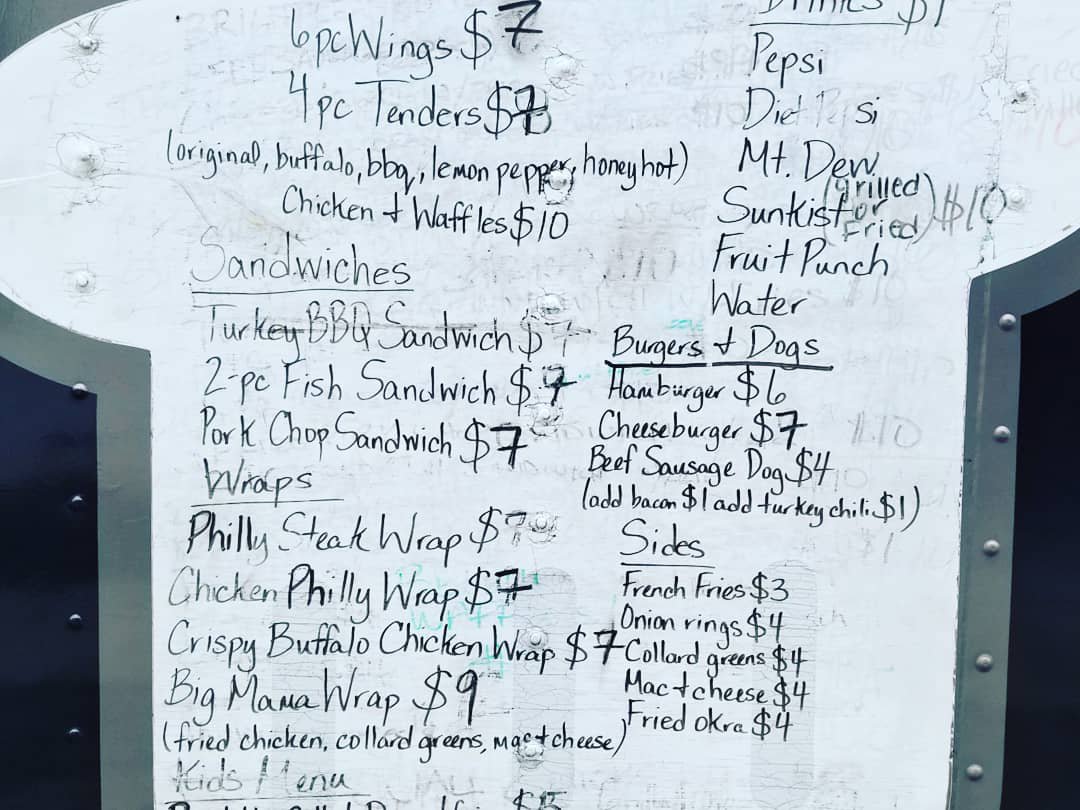 6pc Wings $7
4pc Tenders $7
(original, buffalo, bbq, lemon pepper, honey hot)
Chicken + Waffles $10
Sandwiches
Turkey BBQ Sandwich $7
2-pc Fish Sandwich $7
Pork Chop Sandwich $7
Wraps
Philly Steak Wrap $7
Chicken Philly Wrap $7
Crispy Buffalo Chicken Wrap $7
Big Mama Wrap $9
(fried chicken, collard greens, mac + cheese)
Kids Menu
Drinks $1
Pepsi
Diet Pepsi
Mt. Dew
Sunkist
(grilled or Fried) $10
Fruit Punch
Water
Burgers + Dogs
Hamburger $6
Cheeseburger $7
Beef Sausage Dog $4
(add bacon $1 add turkey chili $1)
Sides
French Fries $3
Onion rings $4
Collard greens $4
Mac + cheese $4
Fried okra $4